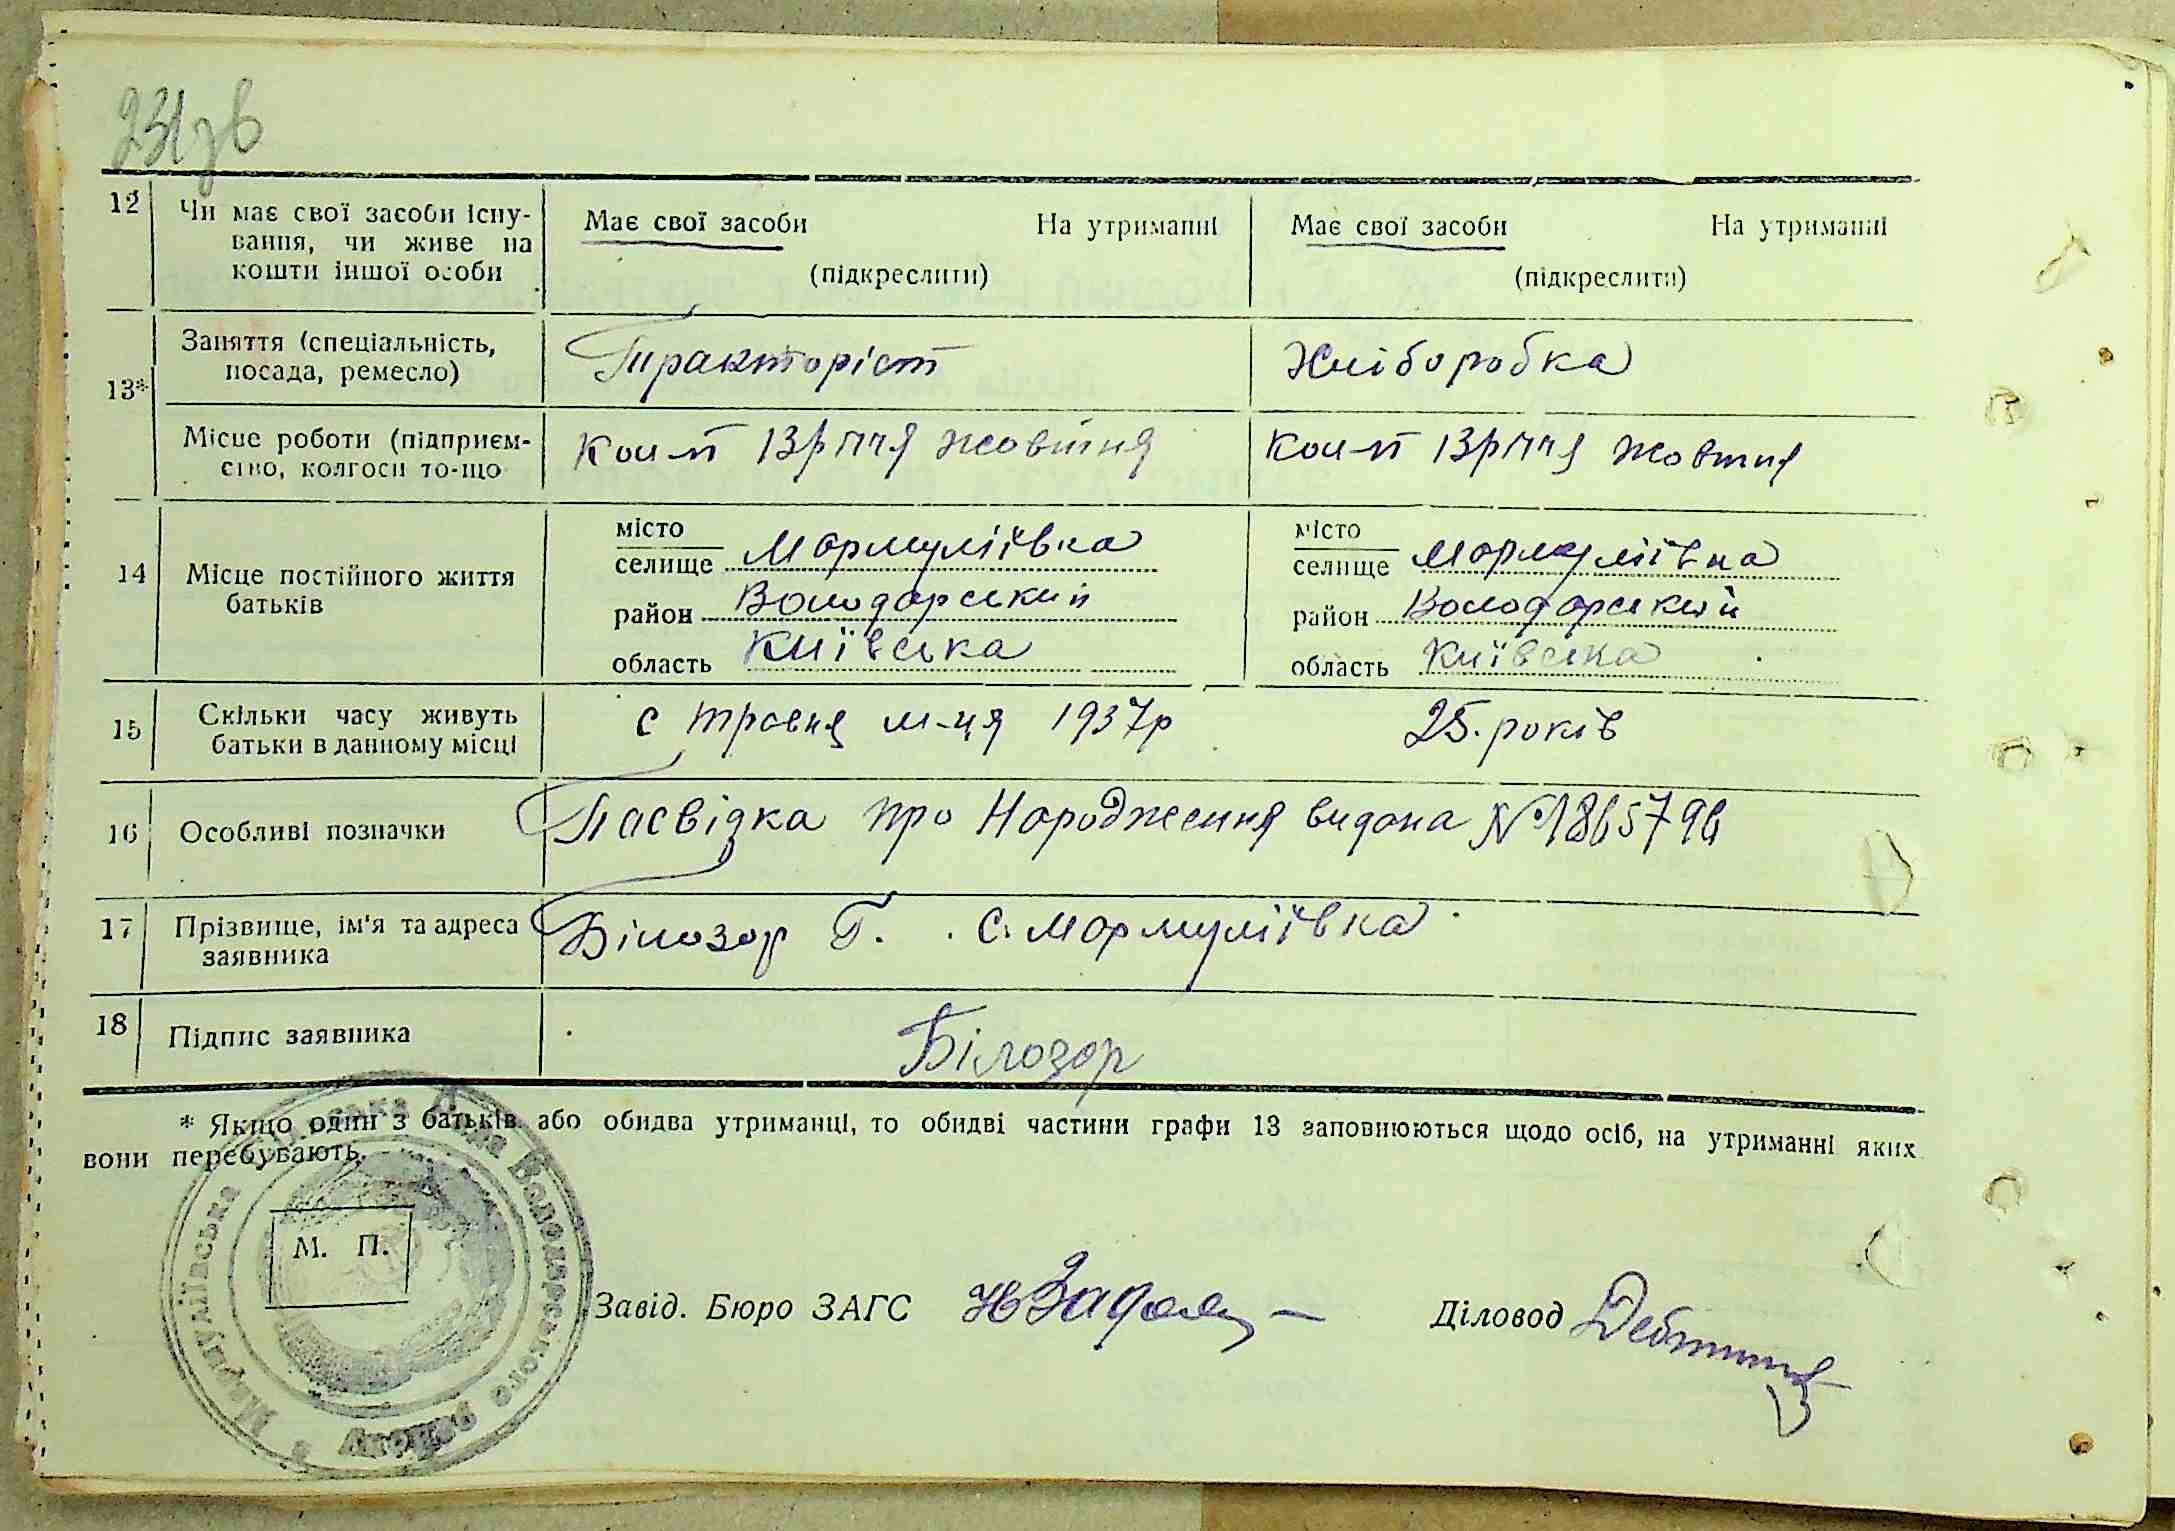 231зв
12 Чи має свої засоби існу-
вання, чи живе на
кошти іншої особи
Має свої засоби На утриманні
(підкреслити)
Має свої засоби На утриманні
(підкреслити)
13* Заняття (спеціальність,
посада, ремесло)
Тракторіст
Хліборобка
Місце роботи (підприєм-
ство, колгосп то-що
Кол-п 13 річчя жовтня
Кол-п 13 річчя жовтня
14 Місце постійного життя
батьків
місто
селище Мармуліївка
район Володарський
область Київська
місто
селище Мармуліївка
район Володарський
область Київська
15 Скільки часу живуть
батьки в данному місці
с травня м-ця 1937р
25. років
16 Особливі позначки
Посвідка про Народження видана №
17 Прізвище, ім'я та адреса
заявника
Білозор Г. с. Мармуліївка
18 Підпис заявника
Білозор
* Якщо один з батьків або обидва утриманці, то обидві частини графи 13 заповнюються щодо осіб, на утриманні яких
вони перебувають.
М. П.
Завід. Бюро ЗАГС
Діловод
Мармуліївська Сільська Рада Володарського району